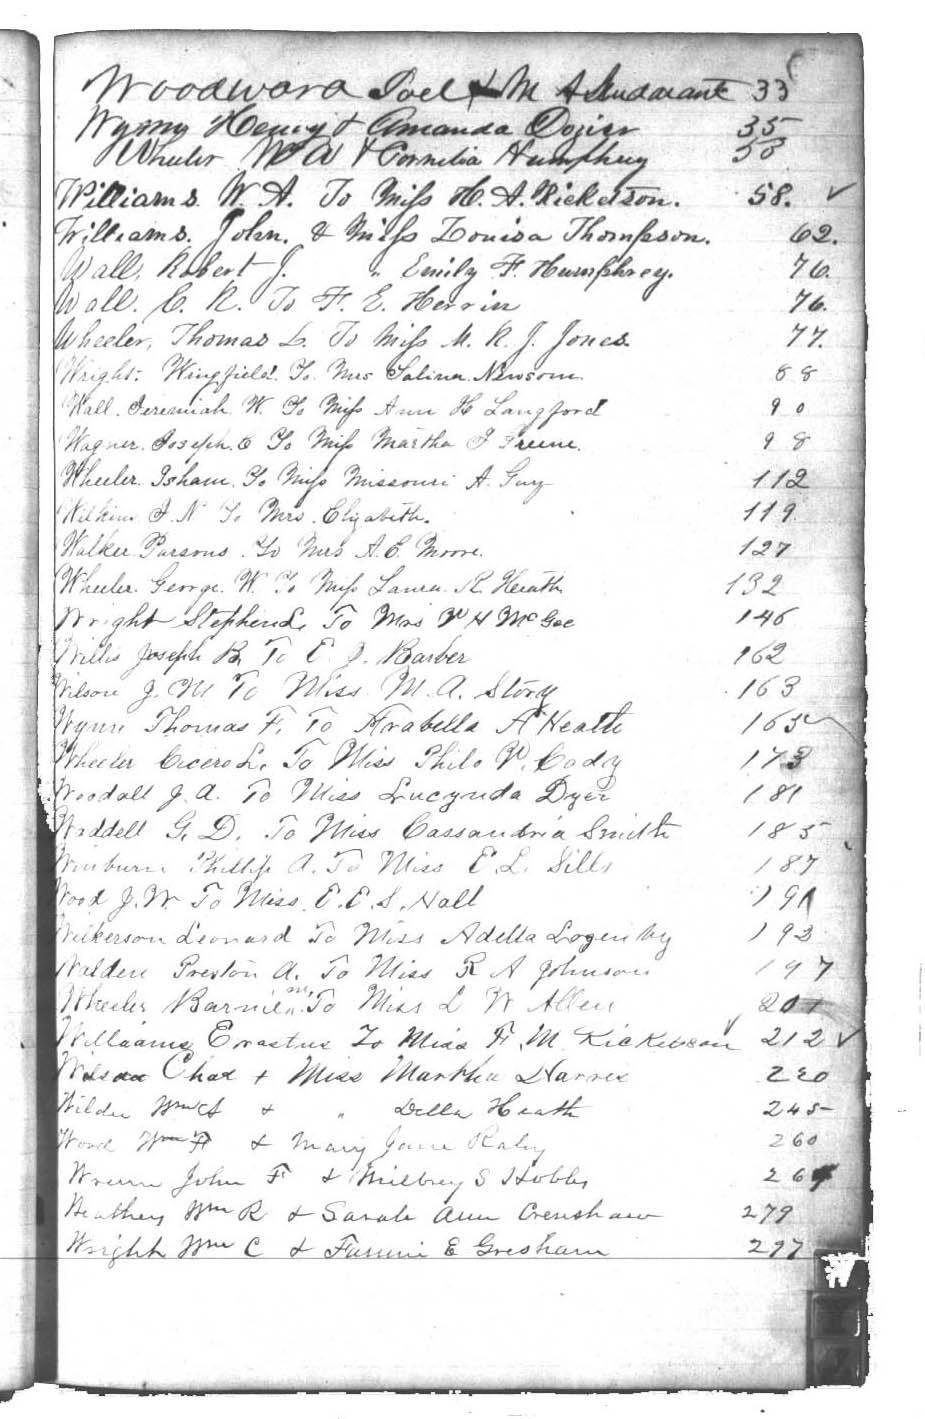 Woodward Joel & M A Sturdavant 33
Wynny Henry & Amanda Dozier 35
Wheeler W A & Cornelia Humphrey 58
Williams. W. A. To Miss H. A. Rickerson. 58.
Williams. John. & Miss Louisa Thompson. 62.
Wall. Robert J. " Emily F. Humphrey. 76.
Wall. C. R. To F. E. Herrin 76.
Wheeler, Thomas L. To Miss M. R. J. Jones. 77.
Wright. Wingfield. To. Mrs Salina Newsom. 88
Wall. Jeremiah W. To Miss Ann H Langford 90
Wagner. Joseph. E To Miss Martha J 98
Wheeler. Isham. To Miss Missouri A. Guy 112
Wilkins J. N To Mrs. Elizabeth. 119.
Walker Parsons. To Mrs A. E. Moore. 127
Wheeler. George. W. To Miss Laura R. Heath 132
Wright Stephen L. To Mrs V H McGee 146
Willis Joseph B. To E. J. Barber 162
Wilson J. M To Miss. M. A. Story 163
Wynn Thomas F. To Arabella A Heath 165
Wheeler Cicero L. To Miss Philo V. Cody 173
Woodall J. A. To Miss Lucynda Dyer 181
Waddell G. D. To Miss Cassandria Smith 185
Winburn Phillip A. To Miss E. L. Sills 187
Wood J. W. To Miss. E. E. S. Hall 191
Wilkerson Leonard To Miss Adella Lozenby 193
Walden Preston A. To Miss R A Johnson 197
Wheeler M. To Miss L W Allen 201
Williams Erastus To Miss F. M. Rickerson 212
Wilson Chas & Miss Martha Harris 220
Wilder Wm A & " Della Heath 245
Wood Wm F & Mary Jane Raby 260
Wrenn John F & Milbrey S Hobbs 264
Weathers Wm R & Sarah Ann Crenshaw 279
Wright Wm C & Fannie E Gresham 297